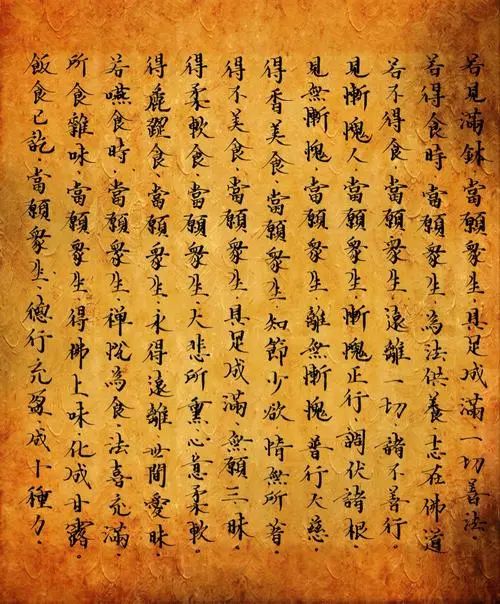 若見滿鉢。當願衆生。具足成滿一切善法。
若得食時。當願衆生。為法供養志在佛道
若不得食。當願衆生。遠離一切諸不善行。
見慚愧人。當願衆生。慚愧正行調伏諸根。
見無慚愧。當願衆生。離無慚愧普行大慈。
得香美食。當願衆生。知節少欲情無所著。
得不美食。當願衆生。具足成滿無願三昧。
得柔軟食。當願衆生。大悲所熏心意柔軟。
得麁澀食。當願衆生。永得遠離世間愛味。
若嚥食時。當願衆生。禪悅為食。法喜充滿
所食雜味。當願衆生。得佛上味化成甘露。
飯食已訖。當願衆生。德行充盈。成十種力。